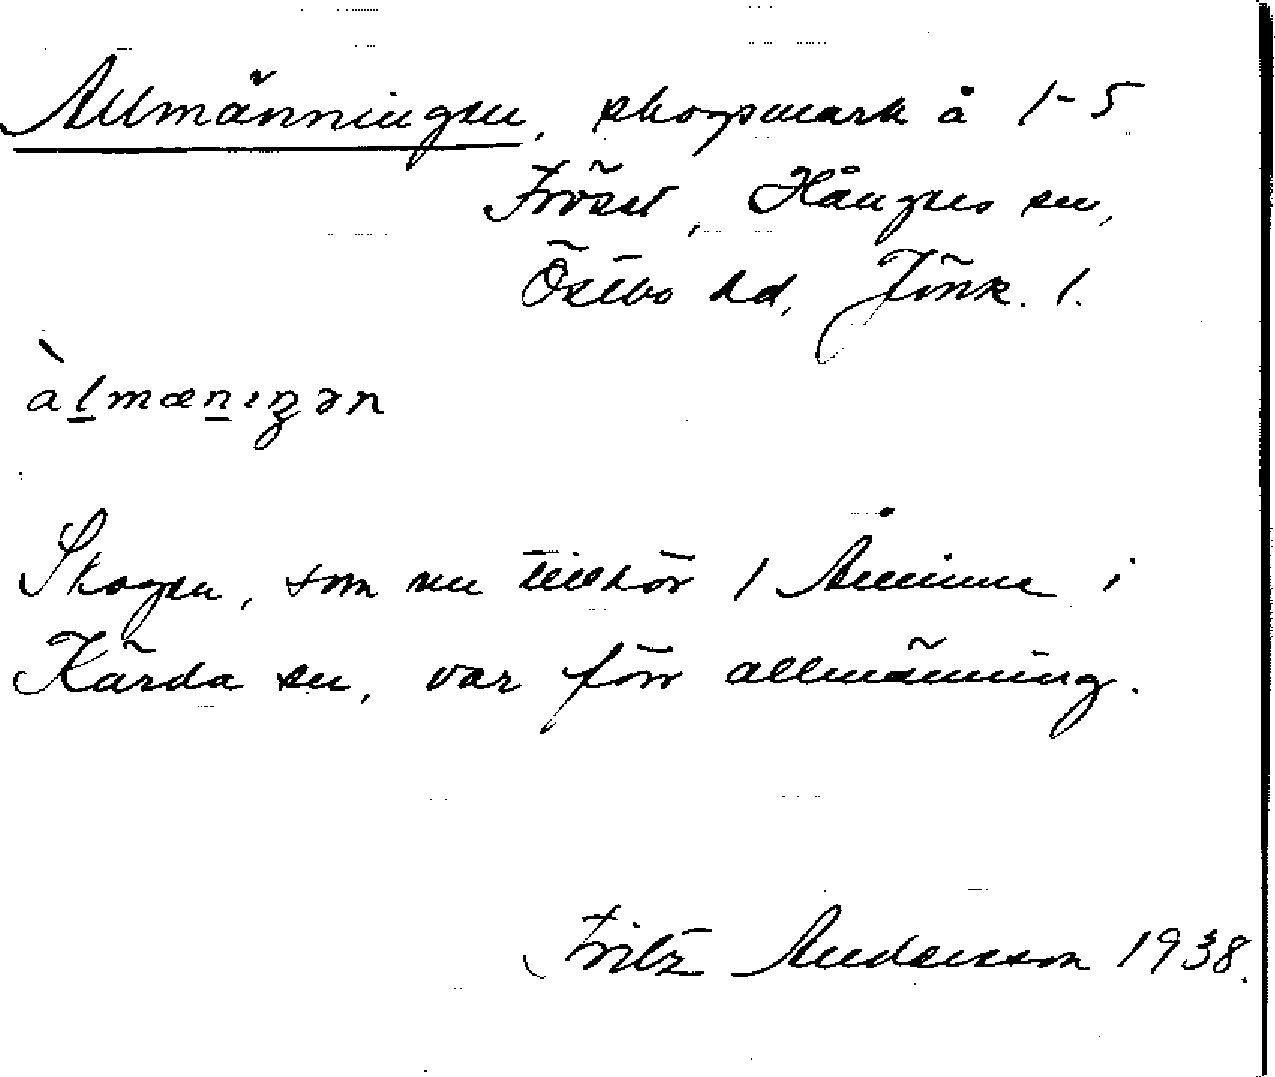 Allmänningen, skogsmark å 1-5
Fröset, Hånger sn,
Östbo hd, Jönk. l.
àlmænıŋən
Skogen, som nu tillhör 1 Åminne i
Kärda sn, var förr allmänning.
Fritz Andersson 1938.